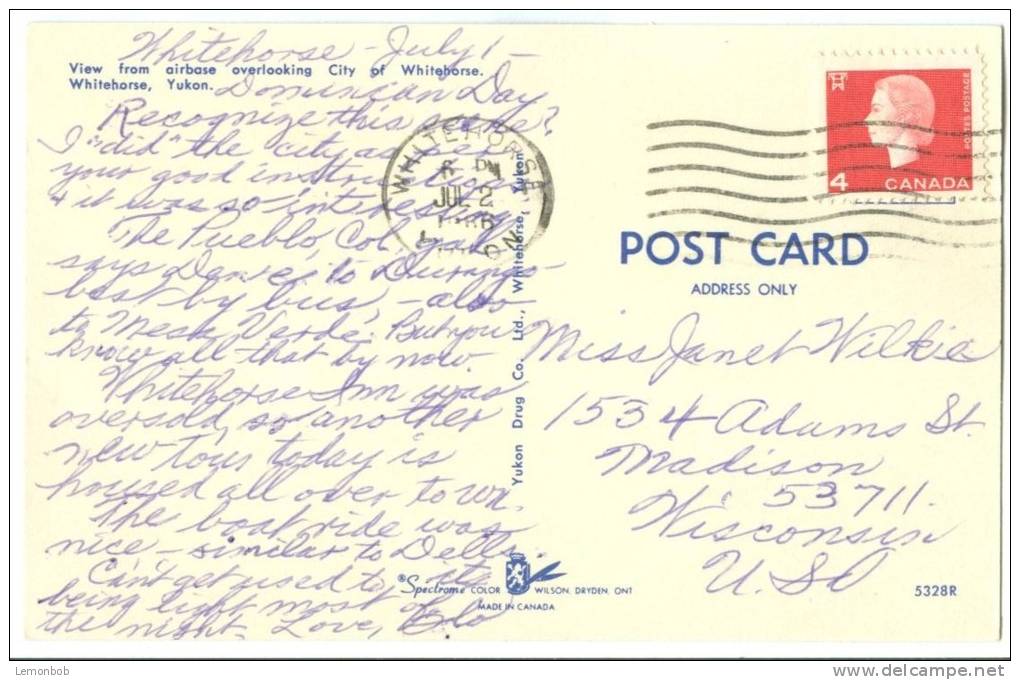 Whitehorse - July 1 -
View from airbase overlooking City of Whitehorse.
Whitehorse, Yukon.
Dominican Day
Recognize this scene?
I "did" the city as per
your good instructions
& it was so interesting
The Pueblo, Col. gal
says Denver to Durango
best by bus, - also
to Mesa Verde. But you
know all that by now.
Whitehorse Inn was
oversold, so another
new tour today is
housed all over town.
The boat ride was
nice - similar to Dells.
Can't get used to its
being light most of
the night. Love, Flo
WHITEHORSE
PM
JUL 2
Yukon Drug Co. Ltd., Whitehorse, Yukon
4
CANADA
POSTES POSTAGE
POST CARD
ADDRESS ONLY
Miss Janet Wilkie
1534 Adams St.
Madison
53711.
Wisconsin
U.S.A
Spectrome COLOR WILSON, DRYDEN, ONT
MADE IN CANADA
5328R
Lemonbob
delcampe.net